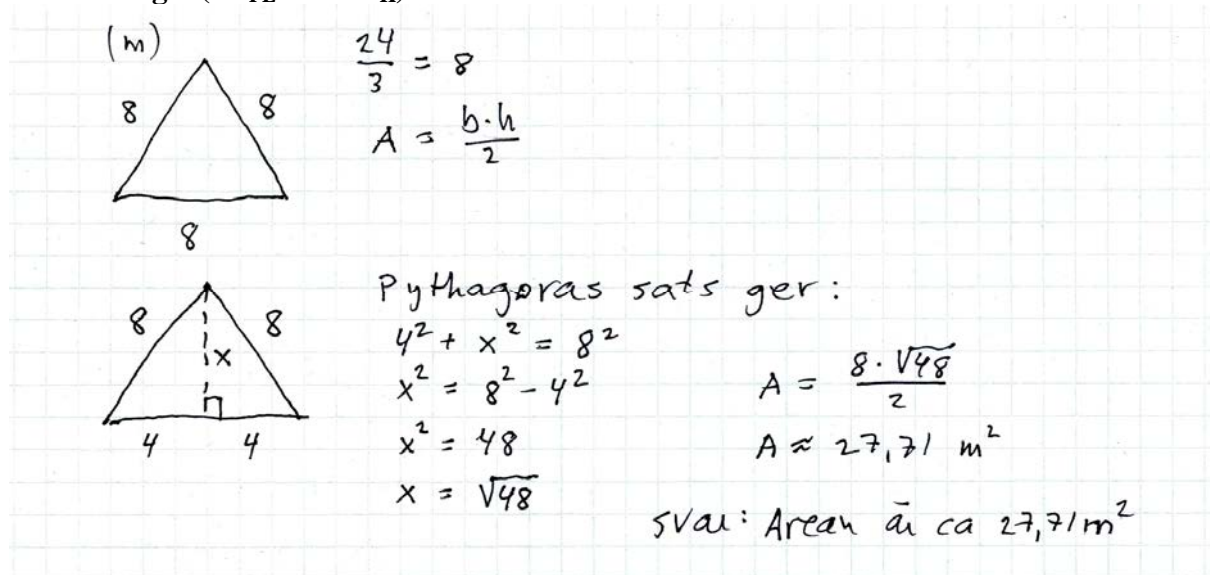 (m)
8 8
8
24/3 = 8
A = b·h/2
8 8
x
4 4
Pythagoras sats ger:
4² + x² = 8²
x² = 8² - 4²
x² = 48
x = √48
A = 8·√48/2
A ≈ 27,71 m²
svar: Arean är ca 27,71 m²